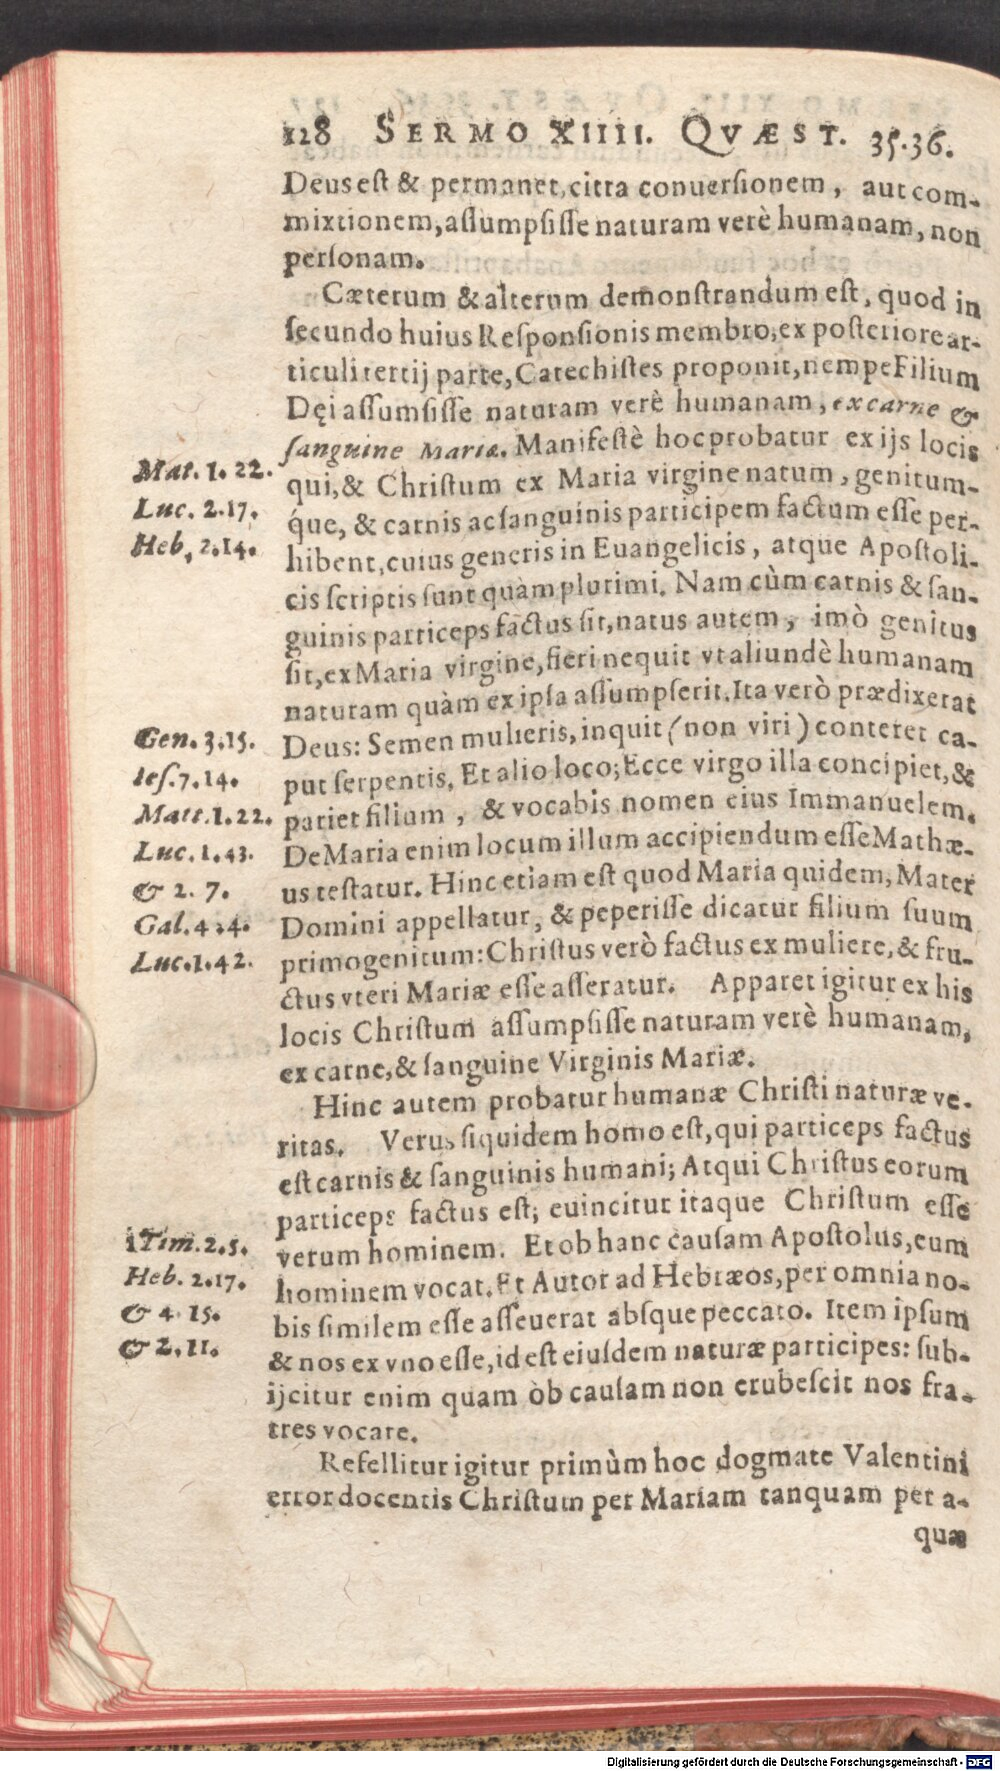 128 SERMO XIIII. QVÆST. 35.36.
Deus eſt & permanet, citra conuerſionem, aut com-
mixtionem, aſſumpſiſſe naturam verè humanam, non
perſonam.
Cæterum & alterum demonſtrandum eſt, quod in
ſecundo huius Reſponſionis membro, ex poſteriore ar-
ticuli tertij parte, Catechiſtes proponit, nempe Filium
Dęi aſſumſiſſe naturam verè humanam, ex carne &
ſanguine Mariæ. Manifeſtè hoc probatur ex ijs locis
Mat. 1. 22.
qui, & Chriſtum ex Maria virgine natum, genitum-
Luc. 2.17.
q́ue, & carnis ac ſanguinis participem factum eſſe per-
Heb, 2.14.
hibent, cuius generis in Euangelicis, atque Apoſtoli-
cis ſcriptis ſunt quàm plurimi. Nam cùm carnis & ſan-
guinis particeps factus ſit, natus autem, imò genitus
ſit, ex Maria virgine, fieri nequit vt aliundè humanam
naturam quàm ex ipſa aſſumpſerit. Ita verò prædixerat
Gen. 3.15.
Deus: Semen mulieris, inquit (non viri) conteret ca-
Ieſ. 7. 14.
put ſerpentis, Et alio loco; Ecce virgo illa concipiet, &
Matt. 1. 22.
pariet filium, & vocabis nomen eius Immanuelem.
Luc. 1. 43.
De Maria enim locum illum accipiendum eſſe Mathæ-
& 2. 7.
us teſtatur. Hinc etiam eſt quod Maria quidem, Mater
Gal. 4. 4.
Domini appellatur, & peperiſſe dicatur filium ſuum
Luc. 1. 42.
primogenitum: Chriſtus verò factus ex muliere, & fru-
ctus vteri Mariæ eſſe aſſeratur. Apparet igitur ex his
locis Chriſtum aſſumpſiſſe naturam verè humanam,
ex carne, & ſanguine Virginis Mariæ.
Hinc autem probatur humanæ Chriſti naturæ ve-
ritas. Verus ſiquidem homo eſt, qui particeps factus
eſt carnis & ſanguinis humani; Atqui Chriſtus eorum
particeps factus eſt; euincitur itaque Chriſtum eſſe
1 Tim. 2.5.
verum hominem. Et ob hanc cauſam Apoſtolus, eum
Heb. 2.17.
hominem vocat. Et Autor ad Hebræos, per omnia no-
& 4. 15.
bis ſimilem eſſe aſſeuerat abſque peccato. Item ipſum
& 2. 11.
& nos ex vno eſſe, id eſt eiuſdem naturæ participes: ſub-
ijcitur enim quam òb cauſam non erubeſcit nos fra-
tres vocare.
Refellitur igitur primùm hoc dogmate Valentini
error docentis Chriſtum per Mariam tanquam per a-
quæ
Digitalisierung gefördert durch die Deutsche Forschungsgemeinschaft - DFG